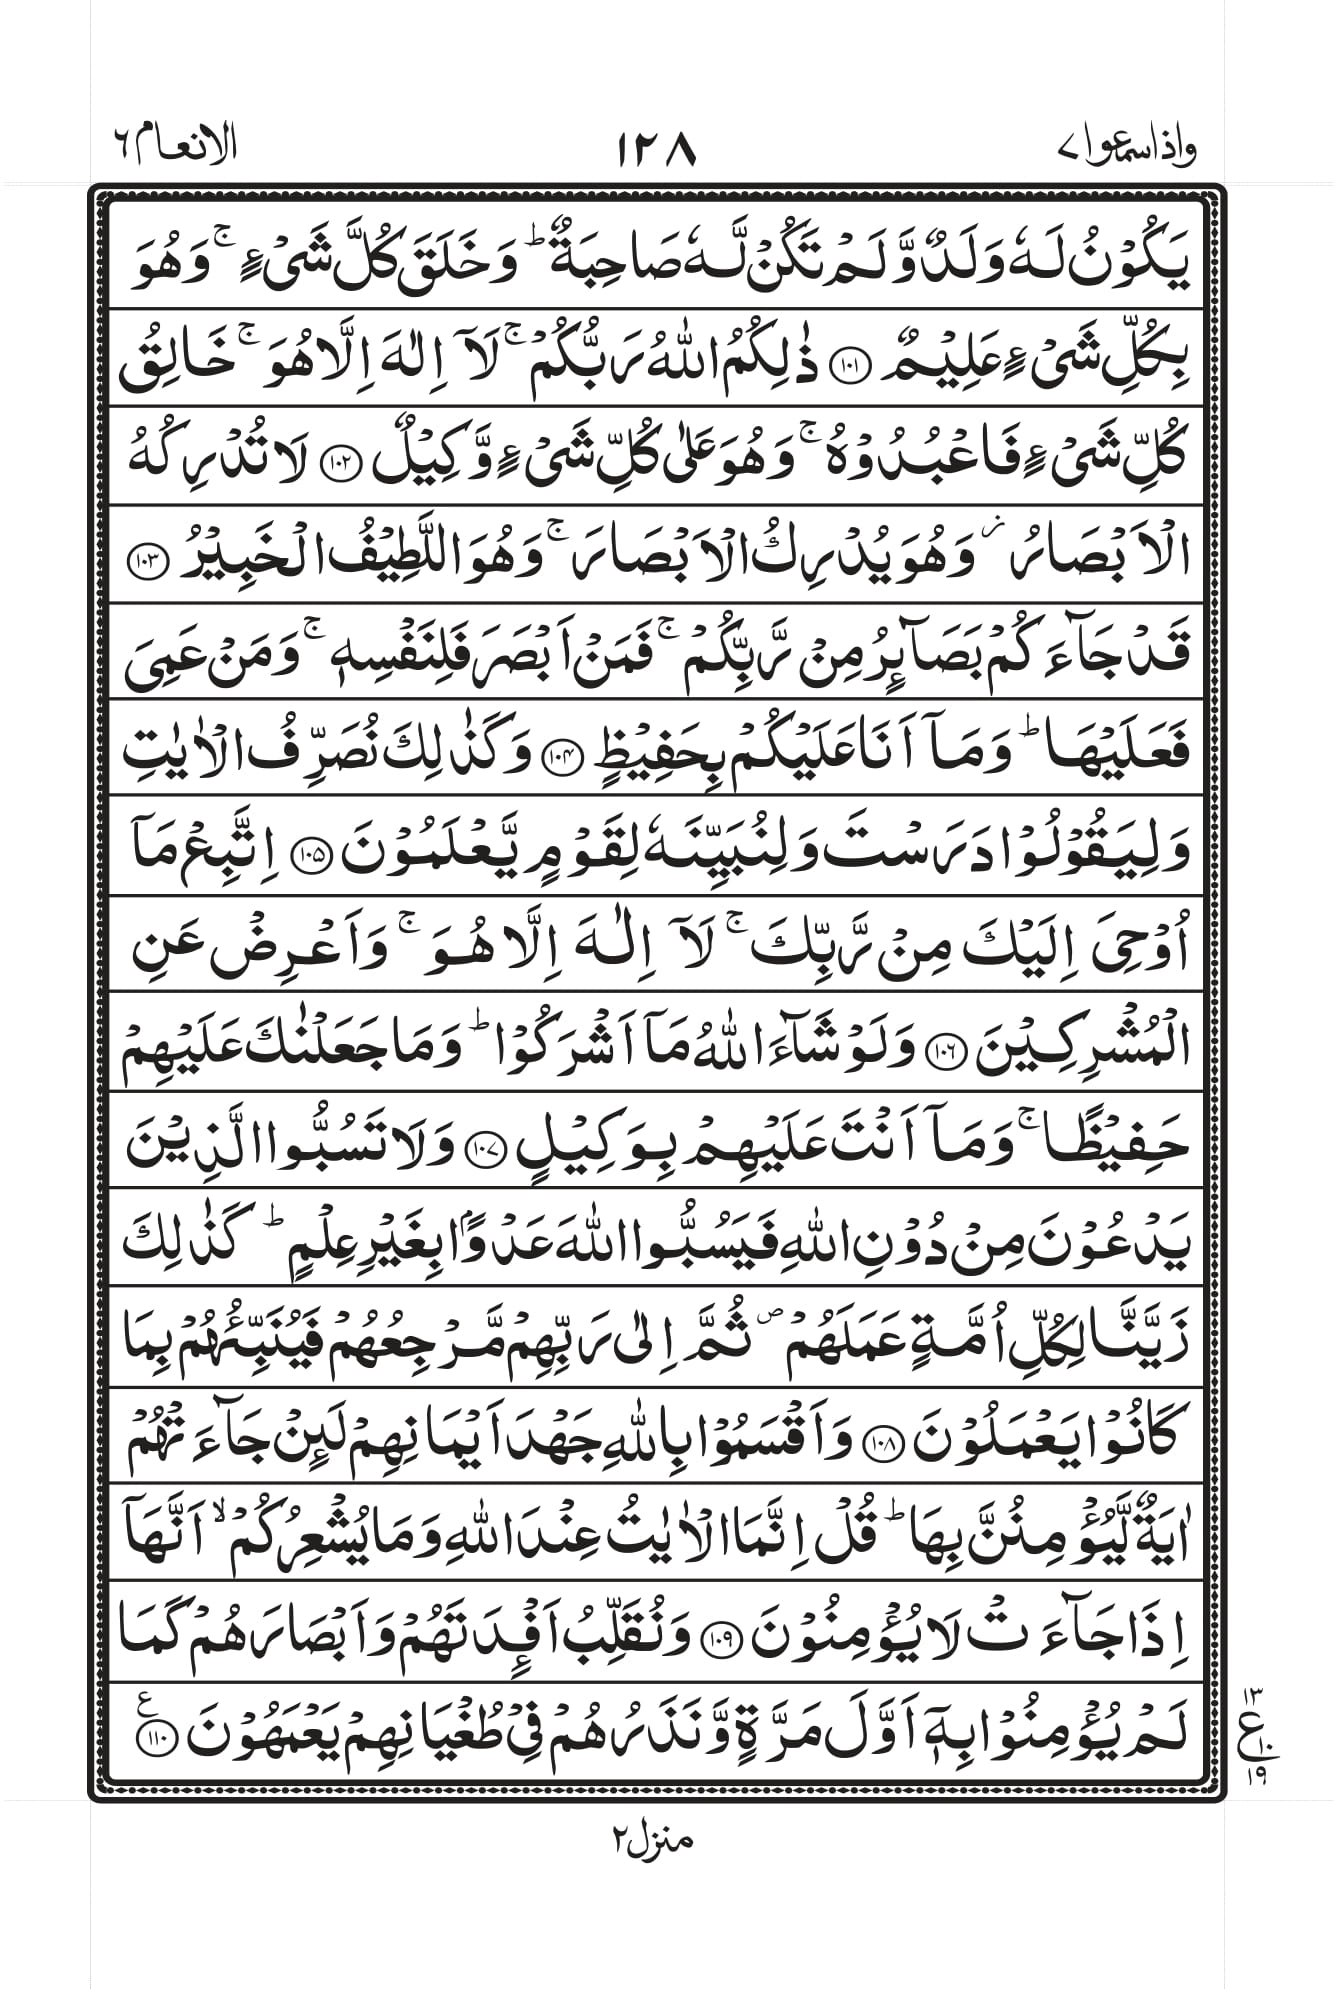 واذاسمعوا ٧ ١٢٨ الانعام ٦
يَكُوۡنُ لَهٗ وَلَدٌ وَّلَمۡ تَكُنۡ لَّهٗ صَاحِبَةٌ ؕ وَخَلَقَ كُلَّ شَىۡءٍ ۚ وَهُوَ
بِكُلِّ شَىۡءٍ عَلِيۡمٌ ﴿١٠١﴾ ذٰلِكُمُ اللّٰهُ رَبُّكُمۡ ۚ لَاۤ اِلٰهَ اِلَّا هُوَ ۚ خَالِقُ
كُلِّ شَىۡءٍ فَاعۡبُدُوۡهُ ۚ وَهُوَ عَلٰى كُلِّ شَىۡءٍ وَّكِيۡلٌ ﴿١٠٢﴾ لَا تُدۡرِكُهُ
الۡاَبۡصَارُ ز وَهُوَ يُدۡرِكُ الۡاَبۡصَارَ ۚ وَهُوَ اللَّطِيۡفُ الۡخَبِيۡرُ ﴿١٠٣﴾
قَدۡ جَآءَكُمۡ بَصَآٮِٕرُ مِنۡ رَّبِّكُمۡ ۚ فَمَنۡ اَبۡصَرَ فَلِنَفۡسِهٖ ۚ وَمَنۡ عَمِىَ
فَعَلَيۡهَا ؕ وَمَاۤ اَنَا عَلَيۡكُمۡ بِحَفِيۡظٍ ﴿١٠٤﴾ وَكَذٰلِكَ نُصَرِّفُ الۡاٰيٰتِ
وَلِيَقُوۡلُوۡا دَرَسۡتَ وَلِنُبَيِّنَهٗ لِقَوۡمٍ يَّعۡلَمُوۡنَ ﴿١٠٥﴾ اِتَّبِعۡ مَاۤ
اُوۡحِىَ اِلَيۡكَ مِنۡ رَّبِّكَ ۚ لَاۤ اِلٰهَ اِلَّا هُوَ ۚ وَاَعۡرِضۡ عَنِ
الۡمُشۡرِكِيۡنَ ﴿١٠٦﴾ وَلَوۡ شَآءَ اللّٰهُ مَاۤ اَشۡرَكُوۡا ؕ وَمَا جَعَلۡنٰكَ عَلَيۡهِمۡ
حَفِيۡظًا ۚ وَمَاۤ اَنۡتَ عَلَيۡهِمۡ بِوَكِيۡلٍ ﴿١٠٧﴾ وَلَا تَسُبُّوا الَّذِيۡنَ
يَدۡعُوۡنَ مِنۡ دُوۡنِ اللّٰهِ فَيَسُبُّوا اللّٰهَ عَدۡوًۢا بِغَيۡرِ عِلۡمٍ ؕ كَذٰلِكَ
زَيَّنَّا لِكُلِّ اُمَّةٍ عَمَلَهُمۡ ص ثُمَّ اِلٰى رَبِّهِمۡ مَّرۡجِعُهُمۡ فَيُنَبِّئُهُمۡ بِمَا
كَانُوۡا يَعۡمَلُوۡنَ ﴿١٠٨﴾ وَاَقۡسَمُوۡا بِاللّٰهِ جَهۡدَ اَيۡمَانِهِمۡ لَٮِٕنۡ جَآءَتۡهُمۡ
اٰيَةٌ لَّيُؤۡمِنُنَّ بِهَا ؕ قُلۡ اِنَّمَا الۡاٰيٰتُ عِنۡدَ اللّٰهِ وَمَا يُشۡعِرُكُمۡ ۙ اَنَّهَاۤ
اِذَا جَآءَتۡ لَا يُؤۡمِنُوۡنَ ﴿١٠٩﴾ وَنُقَلِّبُ اَفۡـِٕدَتَهُمۡ وَاَبۡصَارَهُمۡ كَمَا
لَمۡ يُؤۡمِنُوۡا بِهٖۤ اَوَّلَ مَرَّةٍ وَّنَذَرُهُمۡ فِىۡ طُغۡيَانِهِمۡ يَعۡمَهُوۡنَ ﴿١١٠﴾ ع
١٣
ع ١٠
١٩
منزل ٢